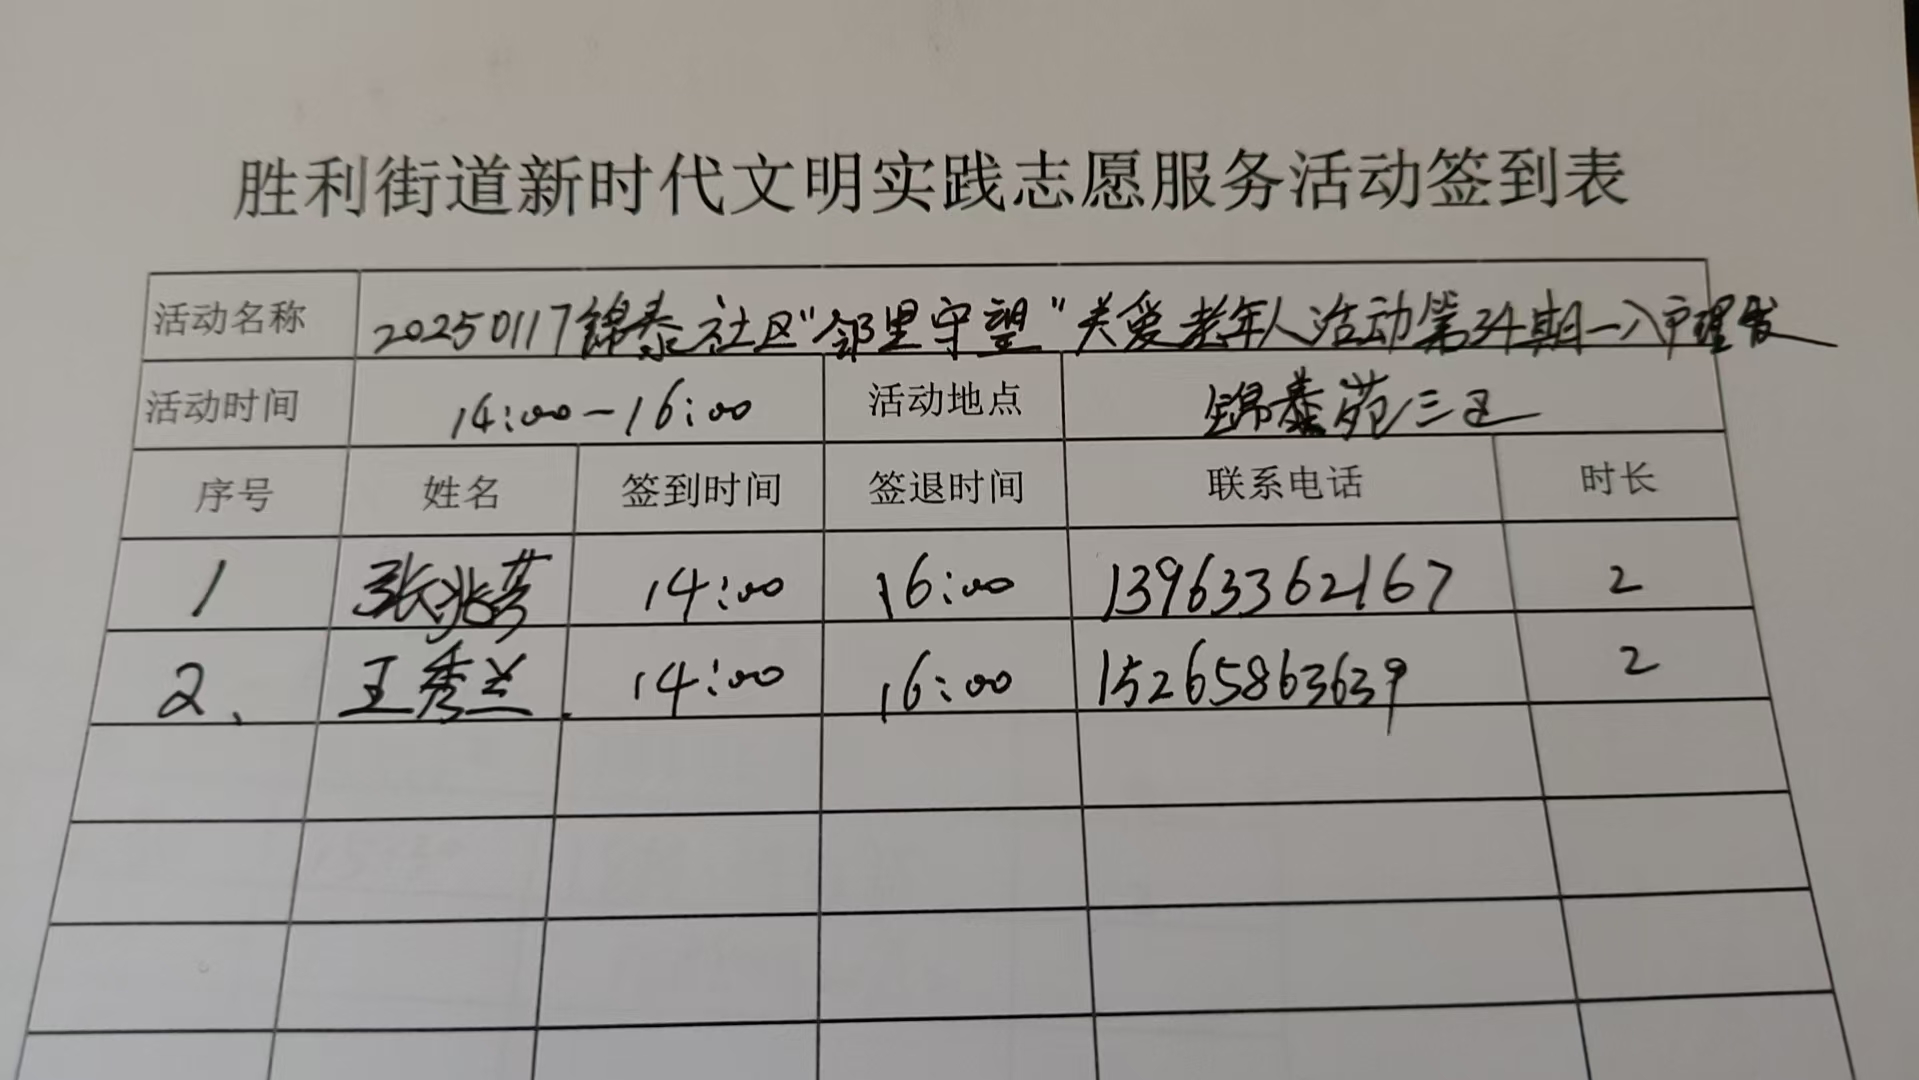 胜利街道新时代文明实践志愿服务活动签到表
活动名称 20250117锦泰社区"邻里守望"关爱老年人活动第34期—入户理发
活动时间 14:00-16:00 活动地点 锦泰苑三区
序号 姓名 签到时间 签退时间 联系电话 时长
1 张兆芳 14:00 16:00 13963362167 2
2、 王秀兰 14:00 16:00 15265863639 2